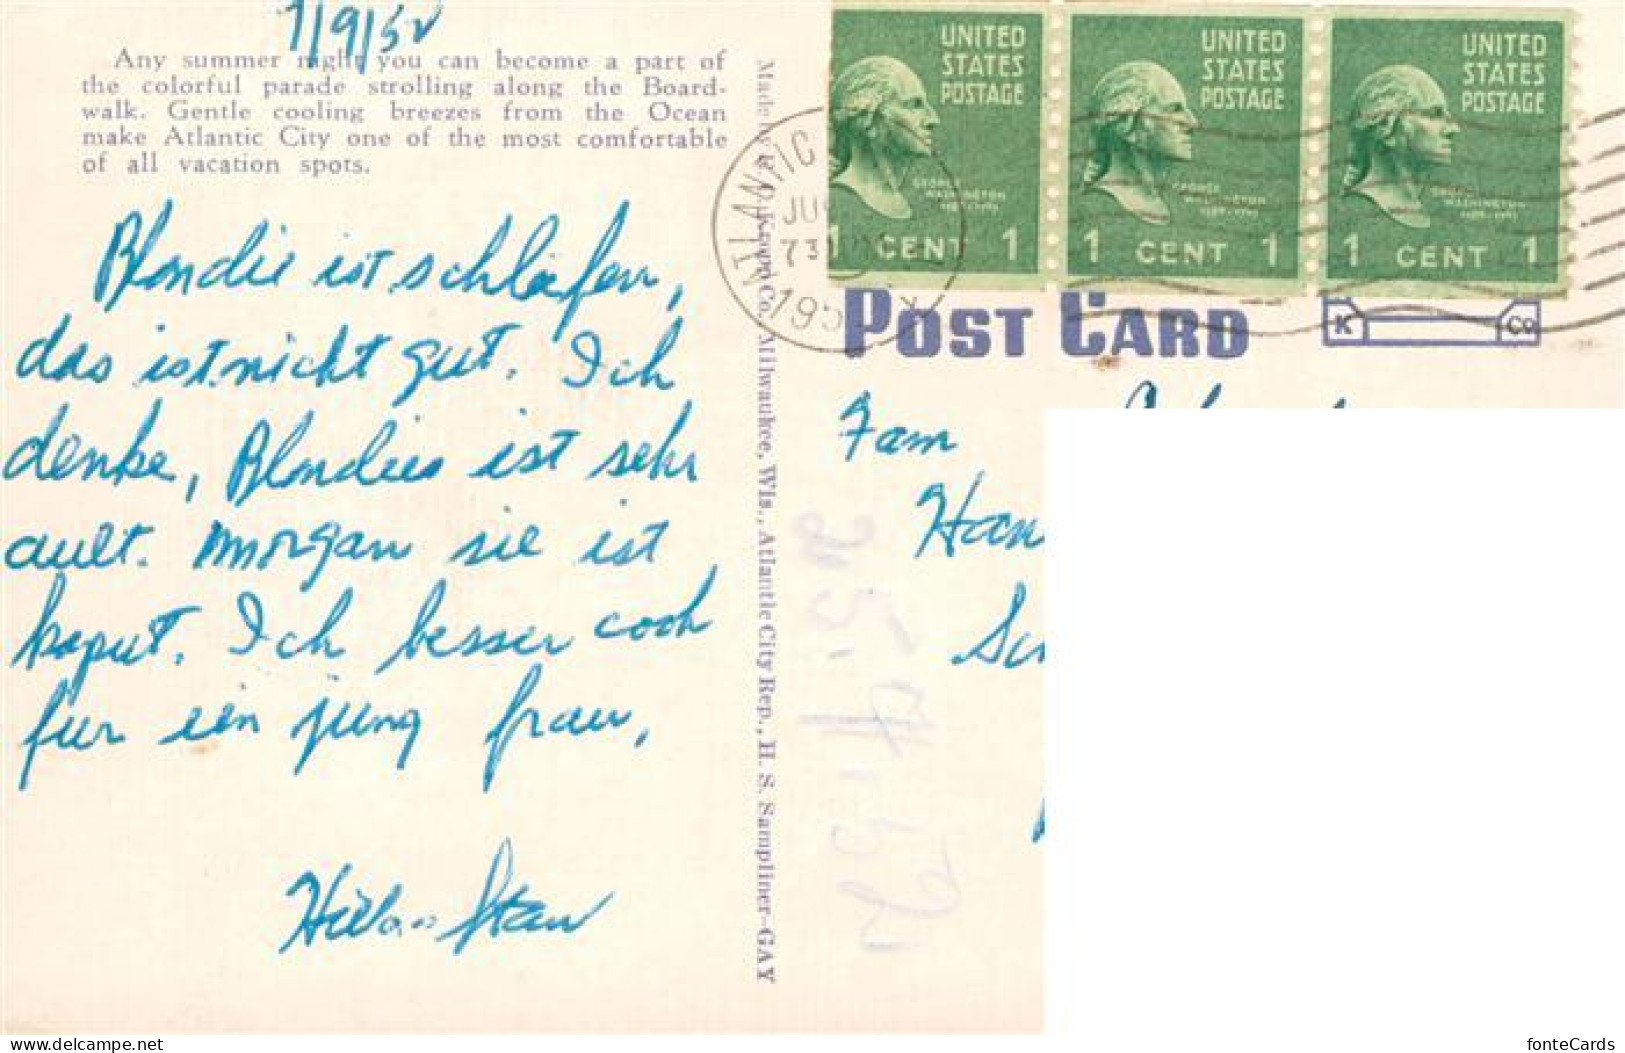 7/9/52
Any summer night you can become a part of
the colorful parade strolling along the Board-
walk. Gentle cooling breezes from the Ocean
make Atlantic City one of the most comfortable
of all vacation spots.
Blondie ist schläfen,
das ist nicht gut. Ich
denke, Blondies ist sehr
ault. morgan sie ist
kaput. Ich besser cooh
für ein jung frau,
Stan
Made by E. C. Kropp Co., Milwaukee, Wis., Atlantic City Rep., H. S. Sampliner—GAY
UNITED
STATES
POSTAGE
GEORGE
WASHINGTON
1 CENT 1
UNITED
STATES
POSTAGE
GEORGE
WASHINGTON
1 CENT 1
UNITED
STATES
POSTAGE
WASHINGTON
1 CENT 1
ATLANTIC
JU
730
195
POST CARD
K Co
Fam
Han
Sc
www.delcampe.net
fonteCards